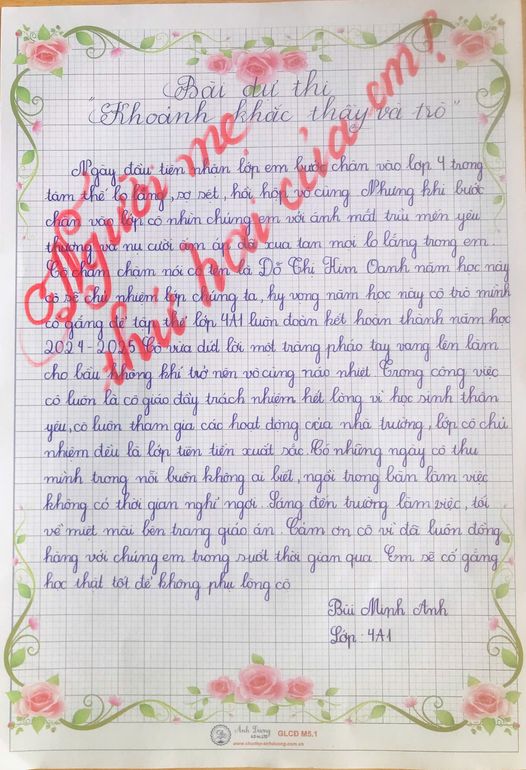 Bài dự thi
"Khoảnh khắc thầy và trò"
Người mẹ
thứ hai của em!
Ngày đầu tiên nhận lớp em bước chân vào lớp 4 trong
tâm thế lo lắng, sợ sệt, hồi hộp vô cùng Nhưng khi bước
chân vào lớp cô nhìn chúng em với ánh mắt trìu mến yêu
thương và nụ cười ấm áp đã xua tan mọi lo lắng trong em
Cô chầm chậm nói cô tên là Đỗ Thị Kim Oanh năm học này
cô sẽ chủ nhiệm lớp chúng ta, hy vọng năm học này cô trò mình
cố gắng để tập thể lớp 4A1 luôn đoàn kết hoàn thành năm học
2024-2025 Cô vừa dứt lời một tràng pháo tay vang lên làm
cho bầu không khí trở nên vô cùng náo nhiệt Trong công việc
cô luôn là cô giáo đầy trách nhiệm hết lòng vì học sinh thân
yêu, cô luôn tham gia các hoạt động của nhà trường, lớp cô chủ
nhiệm đều là lớp tiên tiến xuất sắc. Có những ngày cô thu
mình trong nỗi buồn không ai biết, ngồi trong bàn làm việc
không có thời gian nghỉ ngơi. Sáng đến trường làm việc, tối
về miệt mài bên trang giáo án. Cảm ơn cô vì đã luôn đồng
hàng với chúng em trong suốt thời gian qua Em sẽ cố gắng
học thật tốt để không phụ lòng cô
Bùi Minh Anh
Lớp 4A1
Ánh Dương
GLCD M5.1